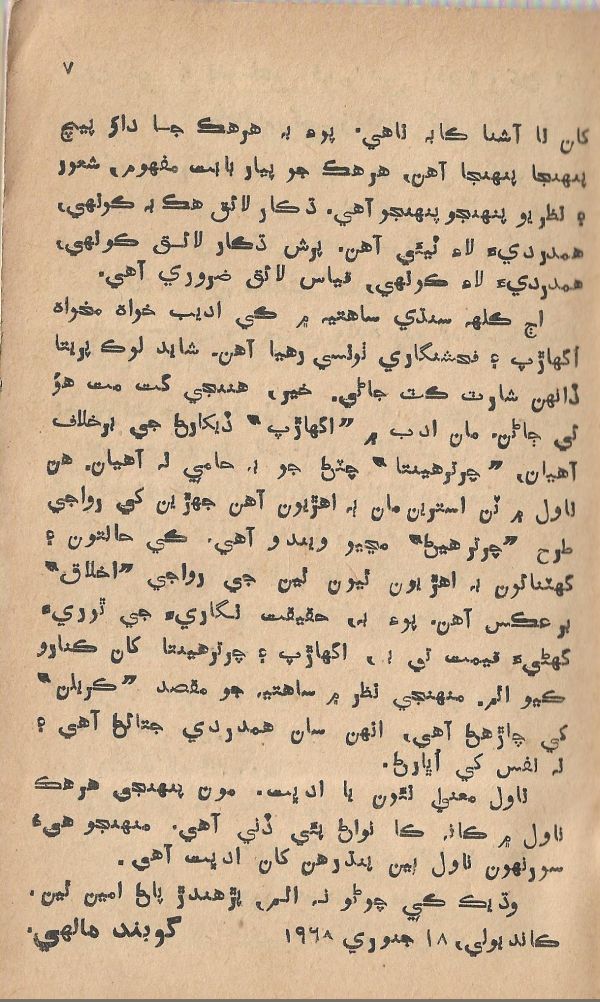 ۷
کان نا آشنا ڪابه ناهي. پوءِ به هرهڪ جا داؤ پيچ
پنهنجا پنهنجا آهن، هرهڪ جو پيار بابت مفهوم، شعور
۽ نظريو پنهنجو پنهنجو آهي. ڌڪار لائق هڪ به ڪونهي،
همدرديءَ لاءِ ٿيئي آهن. پرش ڌڪار لائق ڪونهي،
همدرديءَ لاءِ ڪونهي، قياس لائق ضروري آهي.
اڄ ڪلهه سنڌي ساهتيه ۾ ڪي اديب خواه مخواه
اگهاڙپ ۽ فحشنگاري ٺونسي رهيا آهن. شايد لوڪ پريتا
ڏانهن شارٽ ڪٽ ڄاڻي. خير، هنجي گت مت هو
ئي ڄاڻن. مان ادب ۾ ”اگهاڙپ“ ڏيکارڻ جي برخلاف
آهيان، ”چرترهينتا“ چٽڻ جو به حامي نه آهيان. هن
ناول ۾ ٽن استرين مان به اهڙيون آهن جهڙين کي رواجي
طرح ”چرترهيڻ“ مڃيو ويندو آهي. ڪي حالتون ۽
گهٽنائون به اهڙيون ٿيون ٿين جي رواجي ”اخلاق“
برعڪس آهن. پوءِ به، حقيقت نگاريءَ جي ٿوريءَ
گهڻيءَ قيمت تي به، اگهاڙپ ۽ چرترهينتا کان ڪنارو
ڪيو اٿم. منهنجي نظر ۾ ساهتيه جو مقصد ”ڪريلن“
کي چاڙهڻ آهي، انهن سان همدردي جتائڻ آهي ۽
نه نفس کي اُڀارڻ.
ناول معنيٰ نئون يا ادڀت. مون پنهنجي هرهڪ
ناول ۾ ڪانه ڪا نواڻ پئي ڏني آهي. منهنجو هيءُ
سورنهون ناول ٻين پندرهن کان ادڀت آهي.
وڌيڪ ڪي چوڻو نه اٿم، پڙهندڙ پاڻ امين ٿين.
ڪانديولي، ۱۸ جنوري ۱۹٦۸ گوبند مالهي.